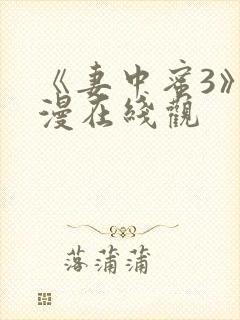 《妻中蜜3》
漫在綫觀
落蒲蒲